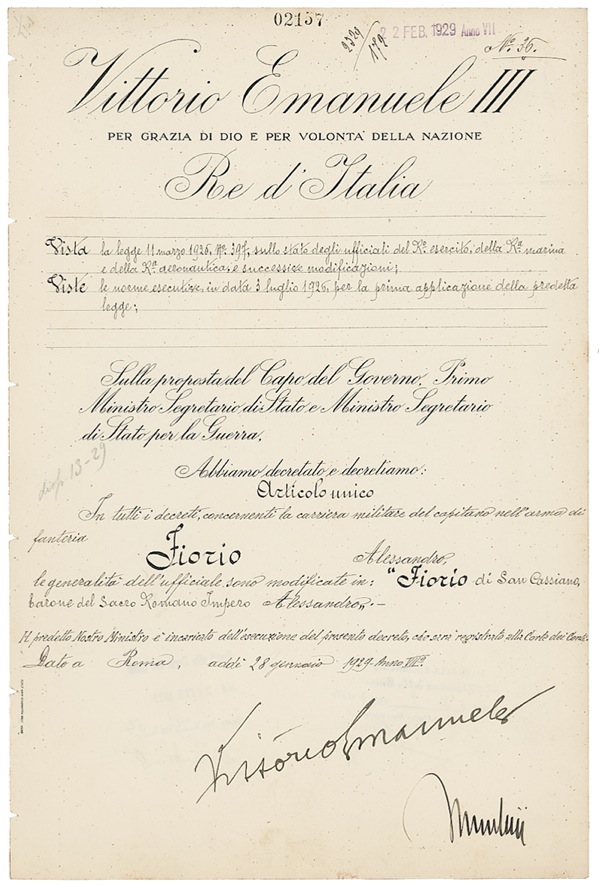 02157
2 FEB. 1929 Anno VII
N.º 36.
Vittorio Emanuele III
PER GRAZIA DI DIO E PER VOLONTA' DELLA NAZIONE
Re d'Italia
Vista la legge 11 marzo 1926, Nº. 397, sullo stato degli ufficiali del Rº. esercito, della Rª. marina
e della Rª. aeronautica, e successive modificazioni;
Viste le norme esecutive, in data 3 luglio 1926, per la prima applicazione della predetta
legge;
Sulla proposta del Capo del Governo, Primo
Ministro Segretario di Stato e Ministro Segretario
di Stato per la Guerra.
disp. 13-29
Abbiamo decretato e decretiamo:
Articolo unico
In tutti i decreti, concernenti la carriera militare del capitano nell'arma di
fanteria
Fiorio Alessandro,
le generalità dell'ufficiale sono modificate in: "Fiorio di San Cassiano,
barone del Sacro Romano Impero Alessandro„.-
Il predetto Nostro Ministro è incaricato dell'esecuzione del presente decreto, che sarà registrato alla Corte dei Conti.
Dato a Roma, addì 28 gennaio 1929 - Anno VIIº.
Vittorio Emanuele
Mussolini